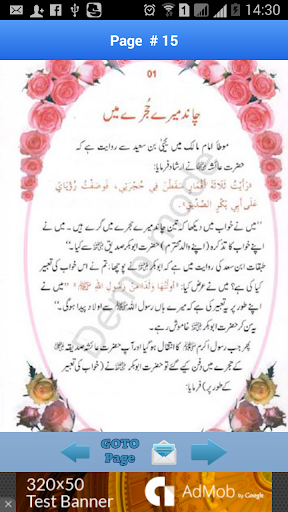 14:30
Page # 15
01
چاند میرے حُجرے میں
موطا امام مالک میں یحییٰ بن سعید سے روایت ہے کہ
حضرت عائشہ نے ارشاد فرمایا:
رَأَيْتُ ثَلَاثَةَ أَقْمَارٍ سَقَطْنَ فِي حُجْرَتِي، فَوَصَفْتُ رُؤْيَايَ
عَلَى أَبِي بَكْرٍ الصِّدِّيقِ
”میں نے خواب میں دیکھا کہ تین چاند میرے حجرے میں گرے ہیں۔ میں نے
اپنے خواب کا تذکرہ (اپنے والد محترم) حضرت ابوبکر صدیق سے کیا۔“
طبقات ابن سعد کی روایت میں ہے کہ ابوبکر نے پوچھا، تم نے اس خواب کی تعبیر
کی ہے؟ میں نے عرض کیا: أَوَّلْتُهَا وَلَدًا مِنْ رَسُولِ اللهِ ﷺ ”میں نے
اپنے طور پر تعبیر کی ہے کہ میرے ہاں رسول اللہ ﷺ سے اولاد پیدا ہوگی۔“
یہ سن کر حضرت ابوبکر خاموش رہے۔
پھر جب رسول اکرم ﷺ کا انتقال ہوگیا اور آپ حضرت عائشہ صدیقہ
کے حجرے میں دفن کیے گئے تو حضرت ابوبکر نے (خواب کی تعبیر
کے طور پر) فرمایا:
Demo mode
GOTO
Page
320×50
Test Banner
AdMob by Google